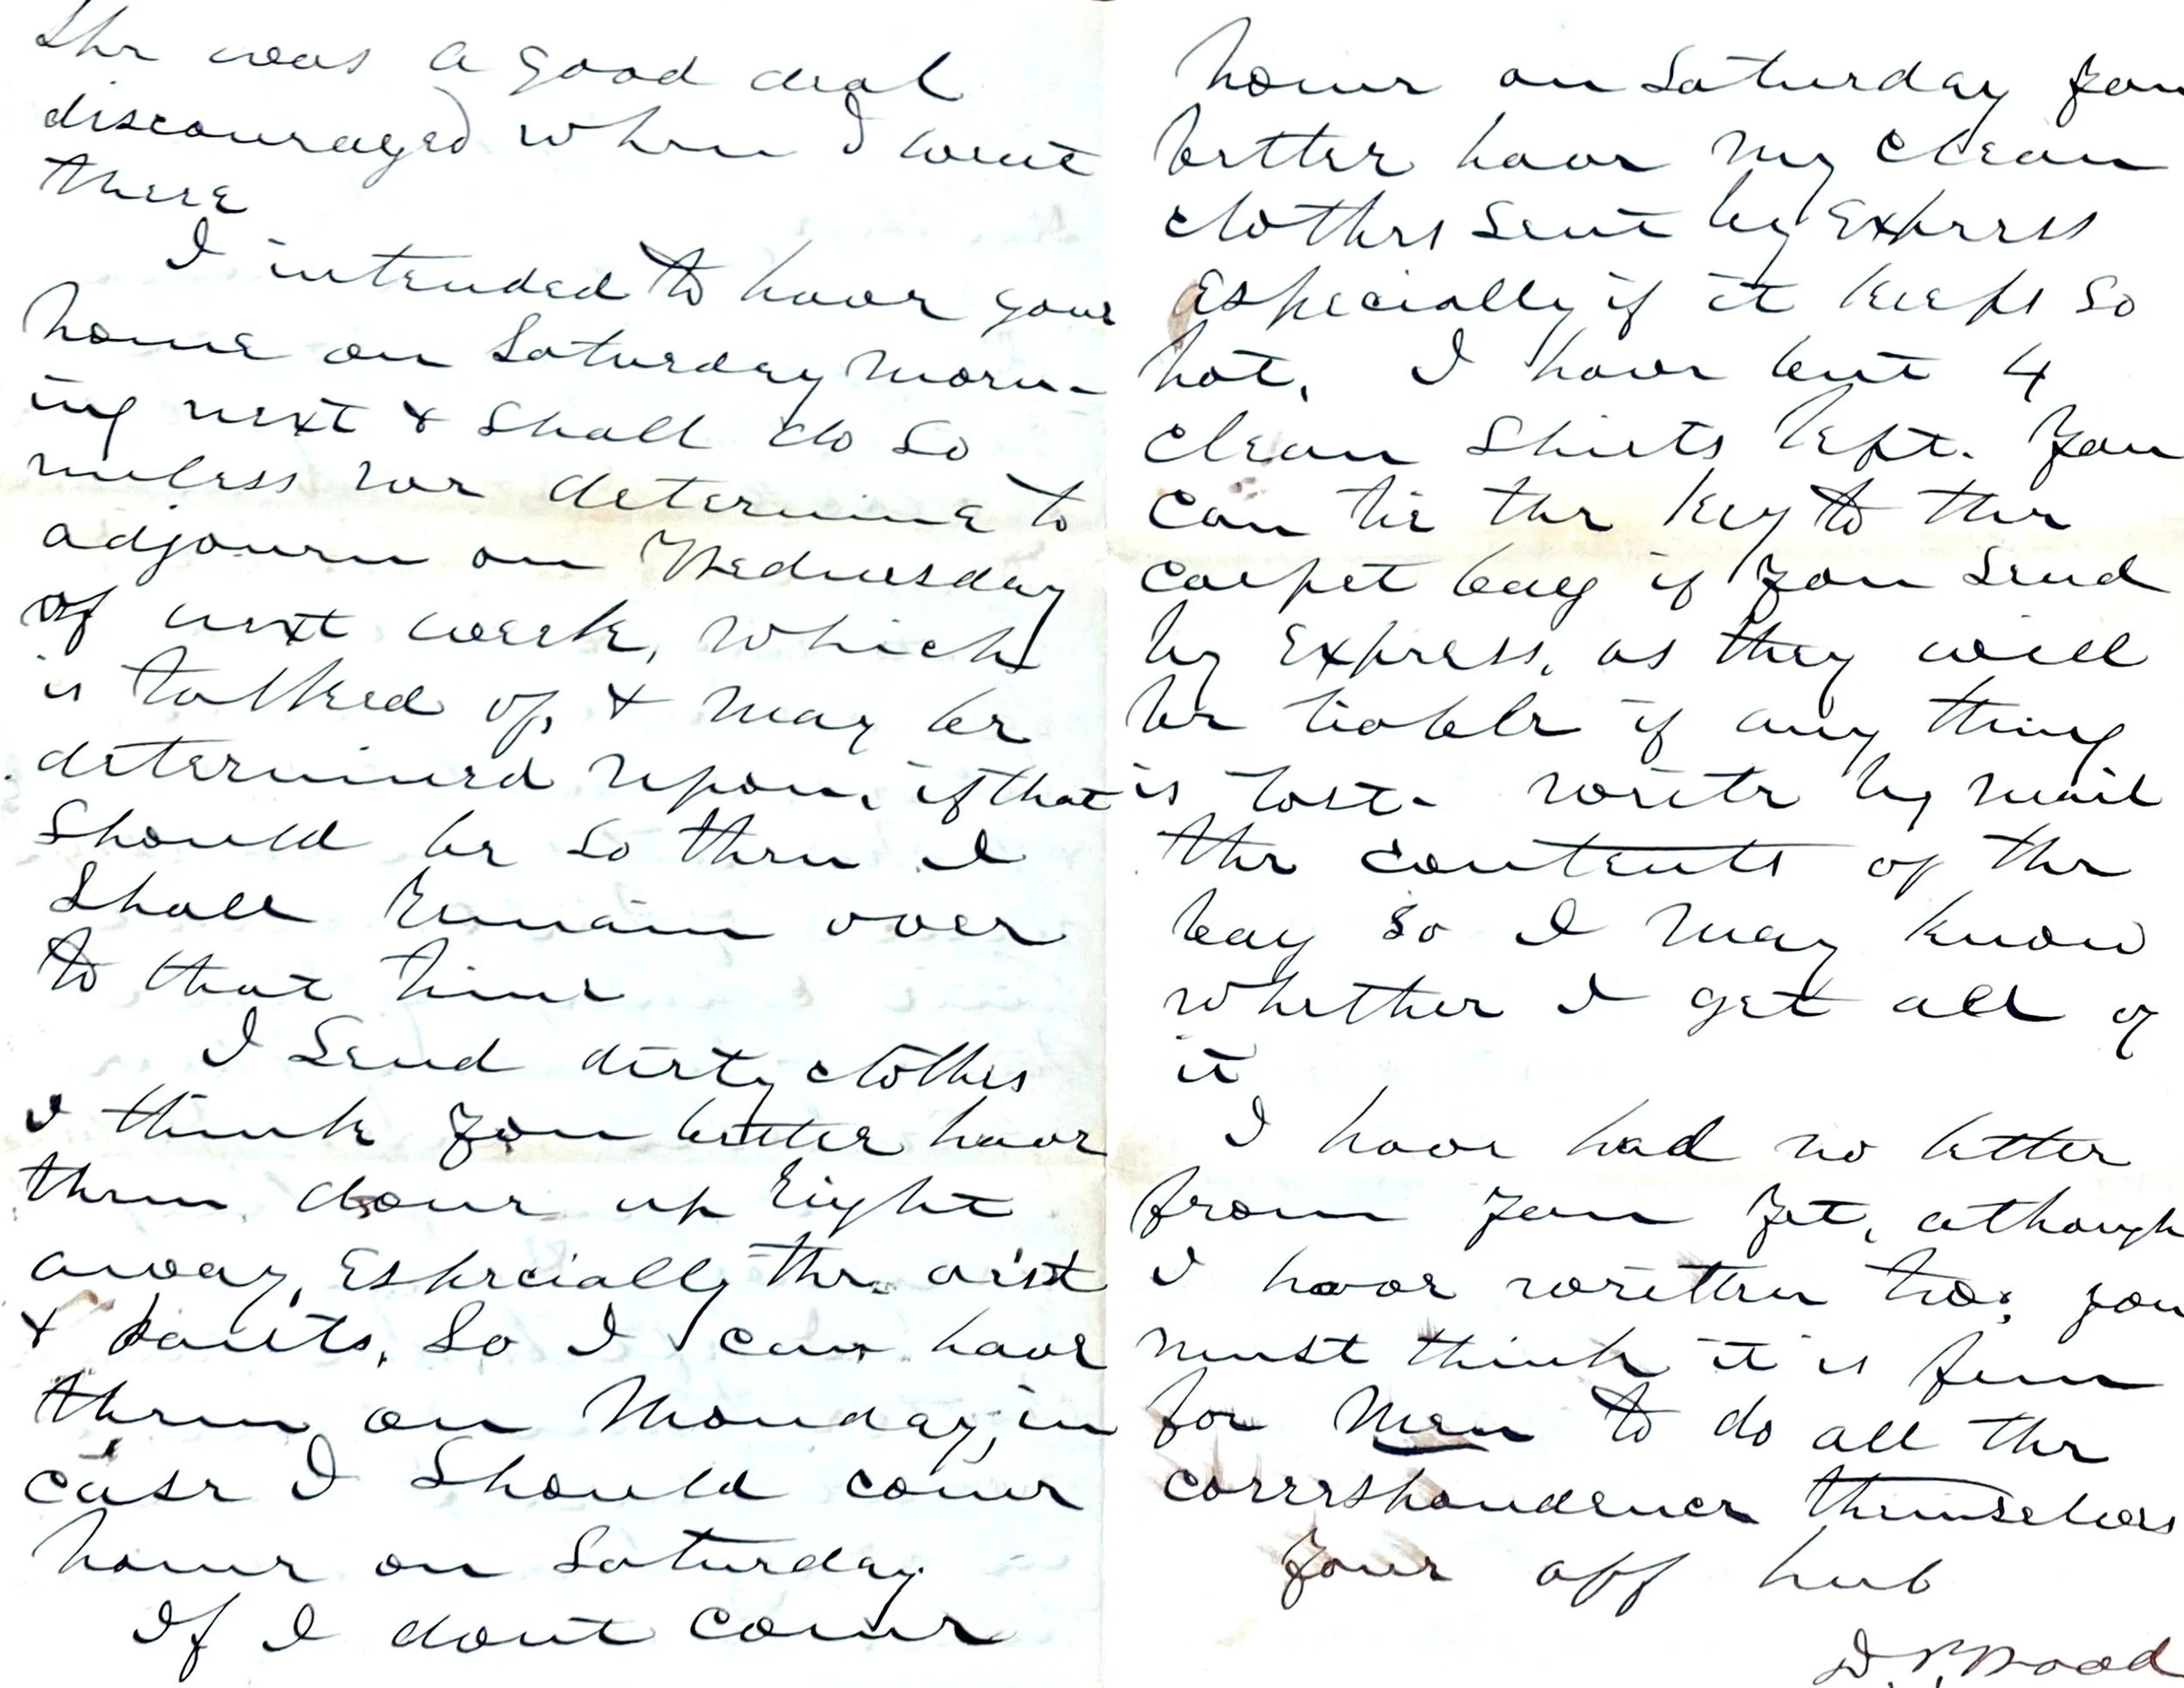 She was a good deal
discouraged when I went
there
I intended to have gone
home on Saturday morn-
ing next & shall do so
unless we determine to
adjourn on Wednesday
of next week, which
is talked of, & may be
determined upon, if that
should be so then I
shall remain over
to that time
I send dirty clothes
I think you better have
them done up right
away, Especially the vist
& pants, so I can have
them on Monday, in
case I should come
home on Saturday
If I dont come
home on Saturday you
better have my clean
clothes sent by Express
Especially if it keeps so
hot, I have but 4
clean shirts left. You
can tie the key to the
carpet bag if you send
by Express, as they will
be liable if any thing
is lost- write by mail
the contents of the
bag so I may know
whether I get all of
it
I have had no letter
from you yet, athough
I have written two; you
must think it is fun
for Men to do all the
correspondence themselves
Your aff hub
D. P. Wood